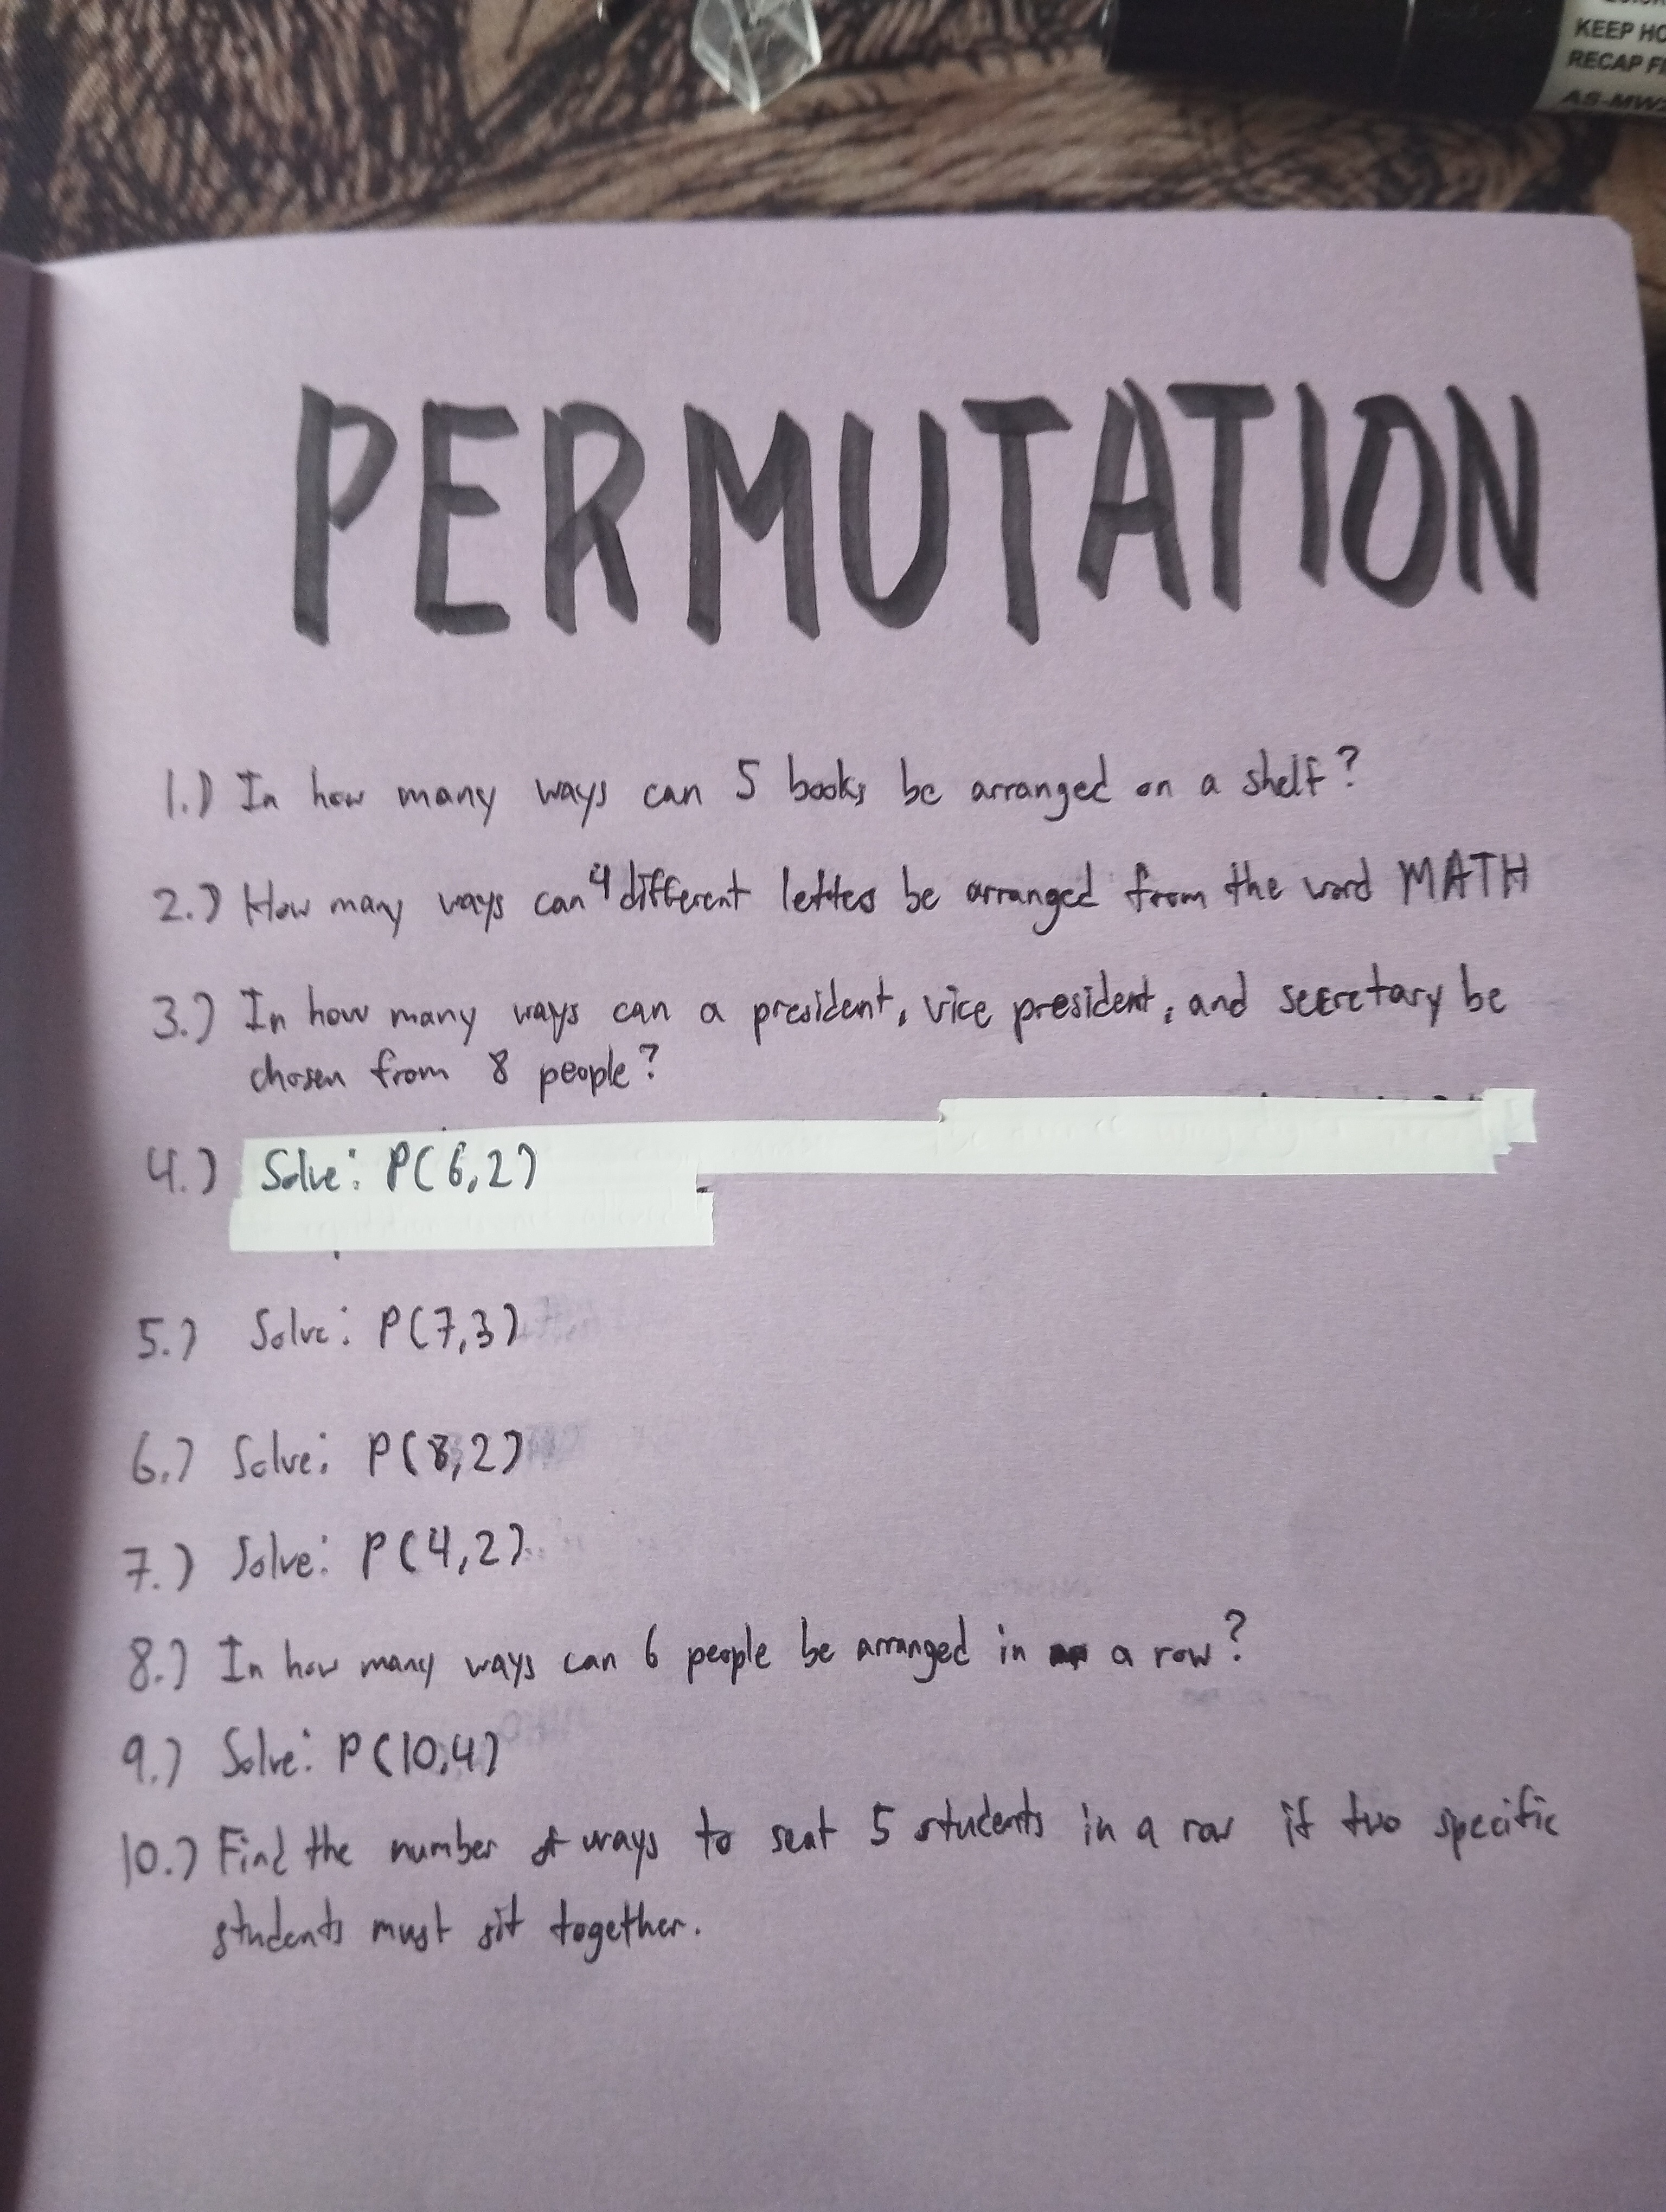 KEEP HO
RECAP FI
PERMUTATION
1.) In how many ways can 5 books be arranged on a shelf?
2.) How many ways can 4 different letters be arranged from the word MATH
3.) In how many ways can a president, vice president, and secretary be
chosen from 8 people?
4.) Solve: P(6,2)
5.) Solve: P(7,3)
6.) Solve: P(8,2)
7.) Solve: P(4,2)
8.) In how many ways can 6 people be arranged in a row?
9.) Solve: P(10,4)
10.) Find the number of ways to seat 5 students in a row if two specific
students must sit together.